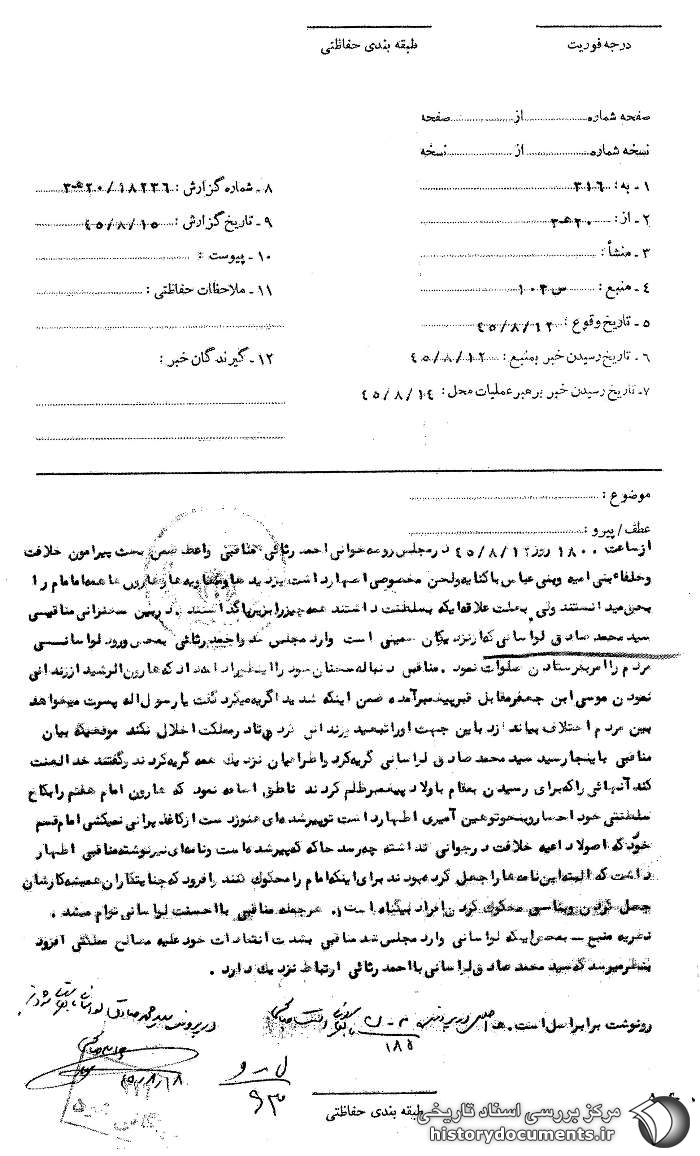 درجه فوریت
طبقه بندی حفاظتی
صفحه شماره از صفحه
نسخه شماره از نسخه
۱ـ به: ۳۱۶
۲ـ از: ۲۰ھ۳
۳ـ منشأ:
۴ـ منبع: س ۱۰۲
۵ـ تاریخ وقوع: ۴۵/۸/۱۲
۶ـ تاریخ رسیدن خبر بمنبع: ۴۵/۸/۱۲
۷ـ تاریخ رسیدن خبر برهبر عملیات محل: ۴۵/۸/۱۴
۸ـ شماره گزارش: ۲۰/۱۸۲۳۶ھ۳
۹ـ تاریخ گزارش: ۴۵/۸/۱۵
۱۰ـ پیوست:
۱۱ـ ملاحظات حفاظتی:
۱۲ـ گیرندگان خبر:
موضوع:
عطف/پیرو:
ازساعت ۱۸۰۰ روز ۴۵/۸/۱۲ در مجلس روضه خوانی احمد رئائی مناقبی واعظ ضمن بحث پیرامون خلافت
وخلفاء بنی امیه وبنی عباس باکنایه ولحن مخصوصی اظهارداشت یزیدها ومعاویه ها وهارون ها همه امام را
بحق میدانستند ولی بعلت علاقه ایکه بسلطنت داشتند همه چیز را زیرپا گذاشتند . دربین سخنرانی مناقبی
سید محمد صادق لواسانی که از نزدیکان خمینی است وارد مجلس شد واحمد رئائی بمحض ورود لواسانی
مردم را امر بفرستادن صلوات نمود . مناقبی دنباله سخنان خود را اینطور ادامه داد که هارون الرشید از زندانی
نمودن موسی ابن جعفر مقابل قبر پیغمبر آمده ضمن اینکه شدیدا گریه میکرد گفت یا رسول اله پسرت میخواهد
بین مردم اختلاف بیاندازد باین جهت اورا تبعید وزندانی کردم تا در مملکت اخلال نکند موقعیکه بیان
مناقبی باینجا رسید سید محمد صادق لواسانی گریه کرد واطرافیان نزدیك همه گریه کردند وگفتند خدا لعنت
کند آنهائی را که برای رسیدن بمقام باولاد پیغمبر ظلم کردند ناطق اضافه نمود که هارون امام هفتم را بکاخ
سلطنتی خود احضار وبنحو توهین آمیزی اظهارداشت تو پیرشده ای هنوز دست از کاغذ پرانی نمیکشی امام قسم
خورد که اصولا داعیه خلافت در جوانی نداشته چه رسد حالا که پیرشده است ونامه ای نیز نوشته مناقبی اظهار
داشت که البته این نامه ها را جعل کرده بودند برای اینکه امام را محکوم کنند وافزود که جنایتکاران همیشه کارشان
جعل کردن وبناحق محکوم کردن افراد بیگناه است . هر جمله مناقبی با احسنت لواسانی توام میشد .
نظریه منبع ـ بمحض اینکه لواسانی وارد مجلس شد مناقبی بشدت انتقادات خود علیه مصالح مملکتی افزود
بنظر میرسد که سید محمد صادق لواسانی با احمد رئائی ارتباط نزدیك دارد .
رونوشت برابر اصل است.
اصل در پرونده
۱۸۵
در پرونده سید محمد صادق لواسانی
۴۵/۸/۱۸
۹۳
طبقه بندی حفاظتی
مرکز بررسی اسناد تاریخی
historydocuments.ir